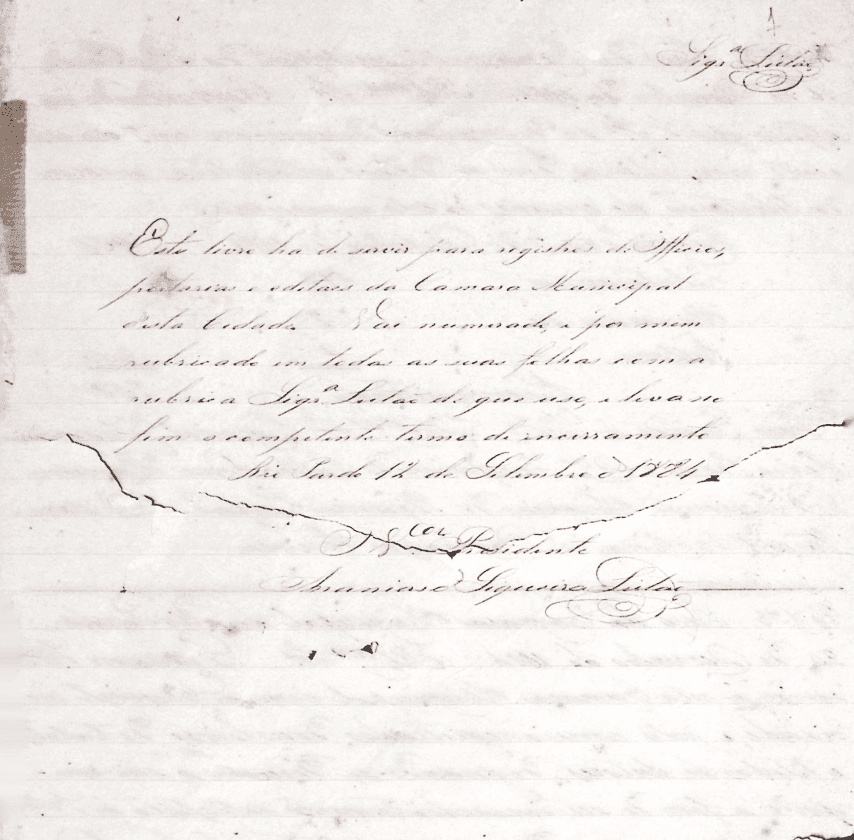 1
Siqrª Leitão
Este livro ha de servir para registros de Officios,
portarias e editaes da Camara Municipal
desta Cidade. Vai numerado, e por mim
rubricado em todas as suas folhas com a
rubrica Siqrª Leitão de que uso, e leva no
fim o competente termo de encerramento
Rio Pardo 12 de Setembro d 1884
O Presidente
Siqueira Leitão